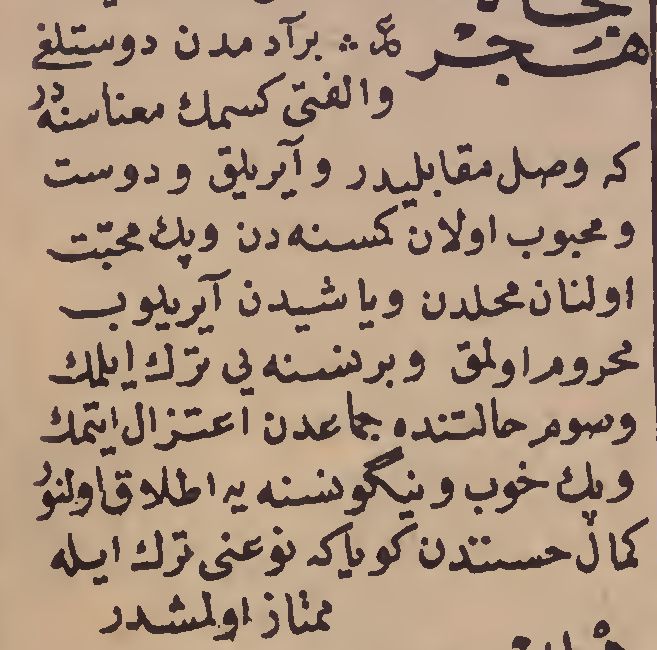 هجر ع ؞ برآدمدن دوستلغی
والفتی کسمك معناسنه در
که وصل مقابلیدر و آیریلق و دوست
و محبوب اولان کمسنه دن و پك محبّت
اولنان محلدن ویا شیدن آیریلوب
محروم اولمق و بر نسنه یی ترك ایلمك
و صوم حالتنده جماعدن اعتزال ایتمك
و پك خوب و نیگو نسنه یه اطلاق اولنور
کمال حسندن کویاکه نوعنی ترك ایله
ممتاز اولمشدر